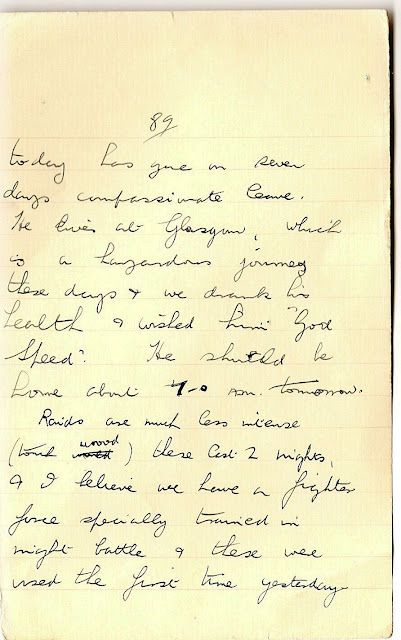 89
today has gone on seven
days compassionate leave.
He lives at Glasgow, which
is a hazardous journey
these days & we drank his
health & wished him "God
Speed". He should be
home about 7-0 am. tomorrow.
Raids are much less intense
(touch wood) these last 2 nights,
& I believe we have a fighter
force specially trained in
night battle & these were
used the first time yesterday